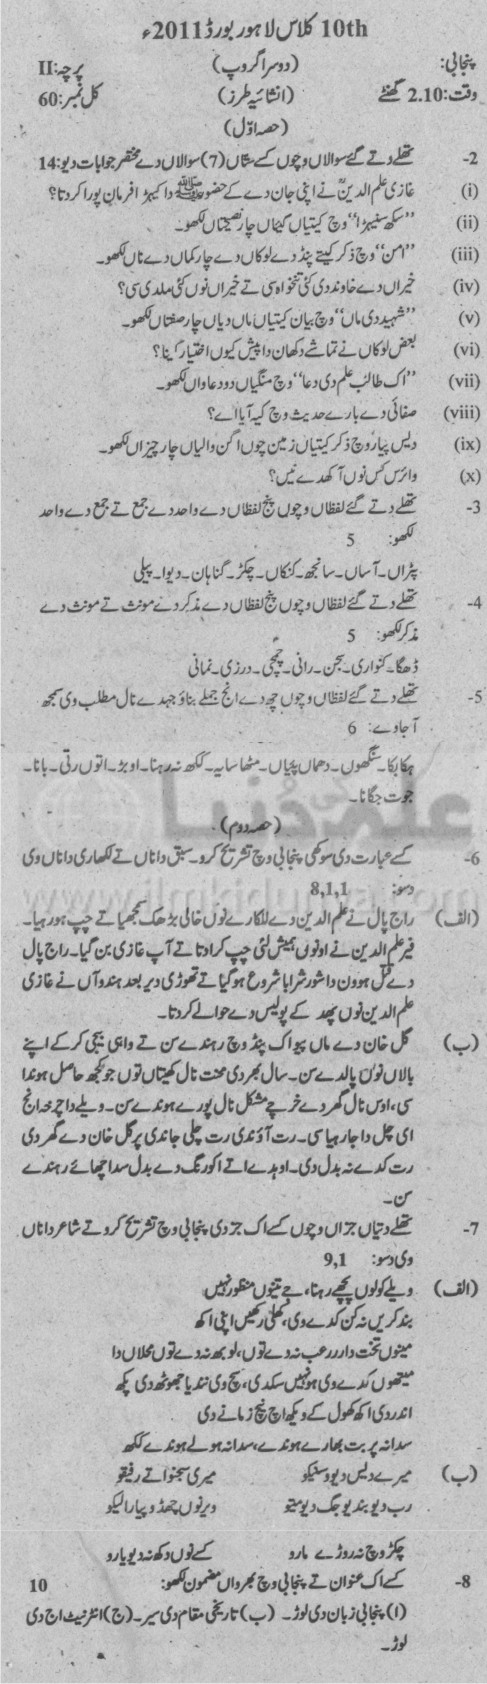 10th کلاس لاہور بورڈ 2011ء
پنجابی: (دوسرا گروپ) پرچہ: II
وقت: 2.10 گھنٹے (انشائیہ طرز) کل نمبر: 60
(حصہ اول)
2- تھلے دتے گئے سوالاں وچوں کسے ستاں (7) سوالاں دے مختصر جوابات دیو: 14
(i) غازی علم الدینؒ نے اپنی جان دے کے حضورﷺ دا کیہڑا فرمان پورا کردتا؟
(ii) ”سکھ سنیہڑا“ وچ کیتیاں گئیاں چار نصیحتاں لکھو۔
(iii) ”امن“ وچ ذکر کیتے پنڈ دے لوکاں دے چار کماں دے ناں لکھو۔
(iv) خیراں دے خاوند دی کنی تنخواہ سی تے خیراں نوں کنی ملدی سی؟
(v) ”شہید دی ماں“ وچ بیان کیتیاں ماں دیاں چار صفتاں لکھو۔
(vi) بعض لوکاں نے تماشے دکھان دا پیشہ کیوں اختیار کیتا؟
(vii) ”اک طالب علم دی دعا“ وچ منگیاں دو دعاواں لکھو۔
(viii) صفائی دے بارے حدیث وچ کیہ آیا اے؟
(ix) دیس پیار وچ ذکر کیتیاں زمین چوں اگن والیاں چار چیزاں لکھو۔
(x) وائرس کس نوں آکھدے نیں؟
3- تھلے دتے گئے لفظاں وچوں پنج لفظاں دے واحد دے جمع تے جمع دے واحد
لکھو: 5
پتراں۔ آساں۔ سانجھ۔ کنکاں۔ چکڑ۔ گناہان۔ دیوا۔ پیلی
4- تھلے دتے گئے لفظاں وچوں پنج لفظاں دے مذکر دے مونث تے مونث دے
مذکر لکھو: 5
ڈھگا۔ کنواری۔ سجن۔ رانی۔ چمچی۔ درزی۔ نمانی
5- تھلے دتے گئے لفظاں وچوں چھ دے انج جملے بناؤ جیہدے نال مطلب وی سمجھ
آجاوے: 6
ہکا بکا۔ سنگھوں۔ دھماں پئیاں۔ مٹھا سایہ۔ ککھ نہ رہنا۔ اوبڑ۔ اتوں رتی۔ بانا۔
جوت جگانا۔
(حصہ دوم)
6- کسے عبارت دی سوکھی پنجابی وچ تشریح کرو۔ سبق دا ناں تے لکھاری دا ناں وی
دسو: 8,1,1
(الف) راج پال نے علم الدین دے للکارے نوں خالی بڑھک سمجھیا تے چپ ہو رہیا۔
فیر علم الدین نے اونوں ہمیش لئی چپ کرا دتا تے آپ غازی بن گیا۔ راج پال
دے قتل ہوون دا شور شرابا شروع ہو گیا تے تھوڑی دیر بعد ہندوآں نے غازی
علم الدین نوں پھد کے پولیس دے حوالے کردتا۔
(ب) گل خان دے ماں پیو اک پنڈ وچ رہندے سن تے واہی بیجی کر کے اپنے
بالاں نوں پالدے سن۔ سال بھر دی محنت نال کھیتاں توں جو کجھ حاصل ہوندا
سی، اوس نال گھر دے خرچے مشکل نال پورے ہوندے سن۔ ویلے دا چرخہ انج
ای چل دا جا رہیا سی۔ رت آؤندی رت چلی جاندی پر گل خان دے گھر دی
رت کدے نہ بدل دی۔ اوہدے اتے اکو رنگ دے بدل سدا چھائے رہندے
سن۔
7- تھلے دتیاں جزاں وچوں کسے اک جز دی پنجابی وچ تشریح کرو تے شاعر دا ناں
وی دسو: 9,1
(الف) ویلے کولوں پچھے رہنا، جے تینوں منظور نہیں
بند کریں نہ کن کدے وی، کھلی رکھیں اپنی اکھ
مینوں تخت دا رعب نہ دے توں، لوبھ نہ دے توں محلاں دا
میتھوں کدے وی ہو نہیں سکدی، سچ وی نندیا جھوٹھ دی پکھ
اندر دی اکھ کھول کے ویکھ اچ نیچ زمانے دی
سدا نہ پربت بھارے ہوندے، سدا نہ ہولے ہوندے ککھ
(ب) میرے دیس دیو وسنیکو میری سجنو اتے رفیقو
رب دیو بندیو جگ دیو متیو ویر نوں چھڈو پیار الیکو
چکڑ وچ نہ روڑے مارو کسے نوں دکھ نہ دیو یارو
8- کسے اک عنوان تے پنجابی وچ بھرواں مضمون لکھو: 10
(ا) پنجابی زبان دی لوڑ۔ (ب) تاریخی مقام دی سیر۔ (ج) انٹرنیٹ اج دی
لوڑ۔
علم کی دنیا
www.ilmkidunya.com